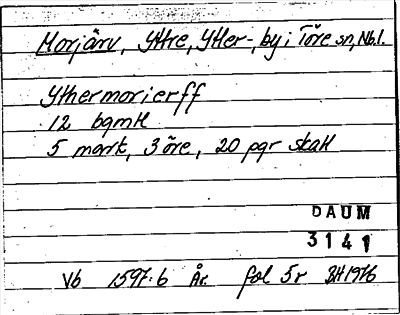 Morjärv, Yttre, Ytter-, by i Töre sn, Nb.l.
Ythermorierff
12 bgmtl
5 mark, 3 öre, 20 pgr skatt
DAUM
3141
Vb 1597:6 År. fol 5r BH 1976